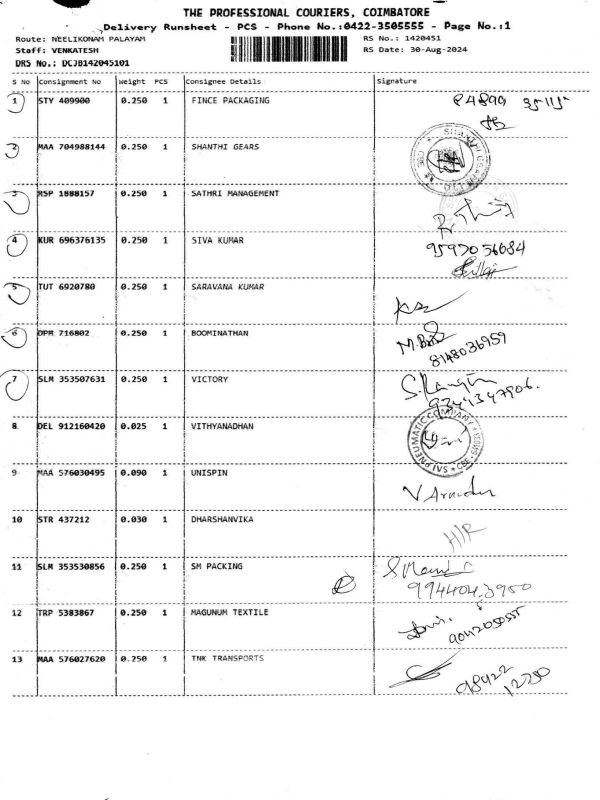 THE PROFESSIONAL COURIERS, COIMBATORE
Delivery Runsheet - PCS - Phone No.:0422-3505555 - Page No.:1
Route: NEELIKONAM PALAYAM RS No.: 1420451
Staff: VENKATESH RS Date: 30-Aug-2024
DRS No.: DCJB142045101
S No Consignment No Weight PCS Consignee Details Signature
1 STY 409900 0.250 1 FINCE PACKAGING
2 MAA 704988144 0.250 1 SHANTHI GEARS
3 RSP 1888157 0.250 1 SATHRI MANAGEMENT
4 KUR 696376135 0.250 1 SIVA KUMAR 9597056684
5 TUT 6920780 0.250 1 SARAVANA KUMAR
6 DPM 716802 0.250 1 BOOMINATHAN
8148036959
7 SLM 353507631 0.250 1 VICTORY
9344347906.
8 DEL 912160420 0.025 1 VITHYANADHAN
9 MAA 576030495 0.090 1 UNISPIN
10 STR 437212 0.030 1 DHARSHANVIKA
H/R
11 SLM 353530856 0.250 1 SM PACKING
9944043950
12 TRP 5383867 0.250 1 MAGUNUM TEXTILE
9042050555
13 MAA 576027620 0.250 1 TNK TRANSPORTS
98422
12750